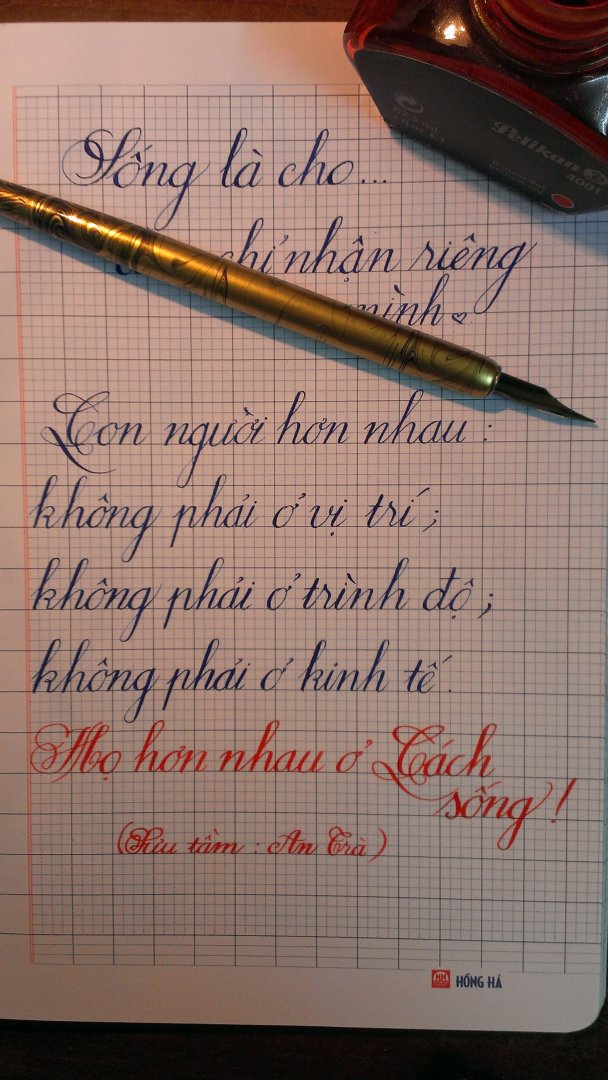 Pelikan
4001
Sống là cho...
chỉ nhận riêng
mình
Con người hơn nhau :
không phải ở vị trí ;
không phải ở trình độ ;
không phải ở kinh tế.
Họ hơn nhau ở Cách
sống !
(Sưu tầm : An Trà)
HH
HỒNG HÀ